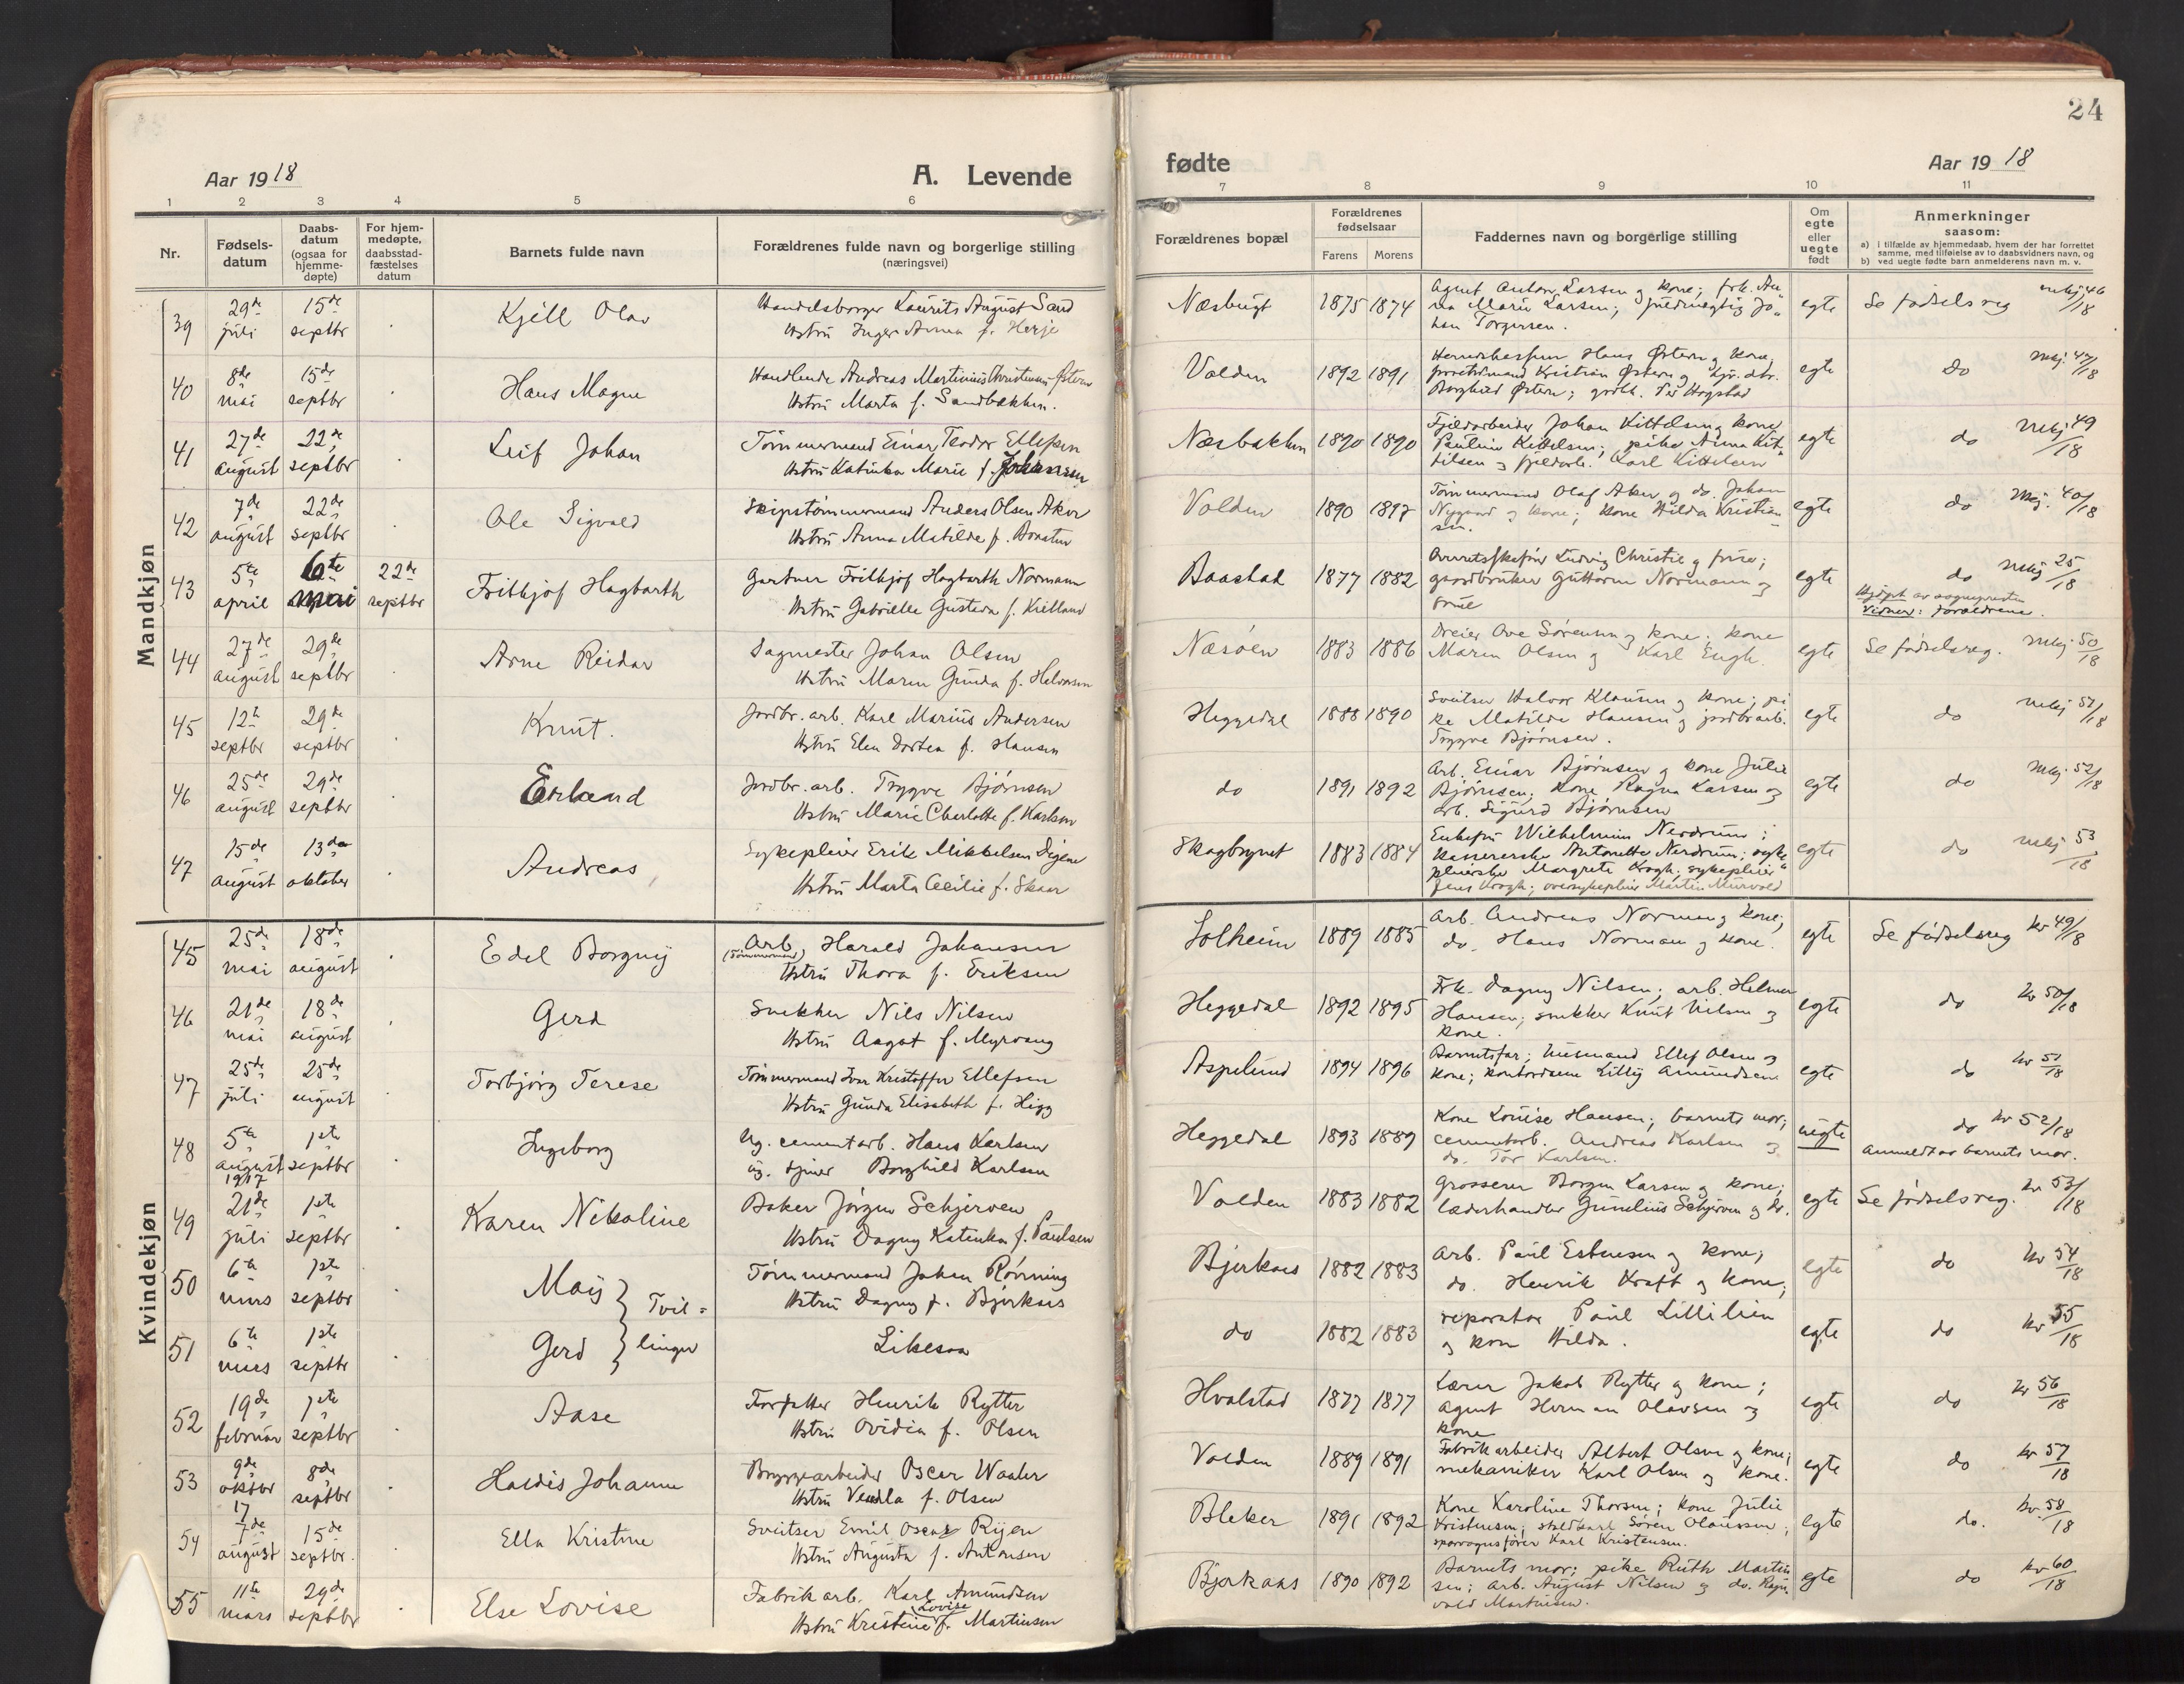 24
Aar 1918
A. Levende
fødte
Aar 1918
1 2 3 4 5 6 7 8 9 10 11
Nr.
Fødsels-
datum
Daabs-
datum
(ogsaa for
hjemme-
døpte)
For hjem-
medøpte,
daabsstad-
fæstelses
datum
Barnets fulde navn
Forældrenes fulde navn og borgerlige stilling
(næringsvei)
Forældrenes bopæl
Forældrenes
fødselsaar
Farens Morens
Faddernes navn og borgerlige stilling
Om
egte
eller
uegte
født
Anmerkninger
saasom:
a) i tilfælde av hjemmedaab, hvem der har forrettet
samme, med tilføielse av to daabsvidners navn, og
b) ved uegte fødte barn anmelderens navn m. v.
Mandkjøn
39 29de juli 15de septbr Kjell Olav
Handelsborger Laurits August Sand
Hstru Inger Anna f. Herje
Næsbugt 1875 1874
Agent Anton Larsen og kone; frk. An-
na Marie Larsen; fuldmægtig Jo-
han Torgersen.
egte Se fødselsreg mkj 46/18
40 8de mai 15de septbr Hans Magne
Handlende Andreas Martinius Christensen Østern
Hstru Marta f. Sandbakken.
Valden 1892 1891
Hans Østern og kone,
Kristian Østern og
Borghild Østern; Per Hogstad
egte do mkj. 47/18
41 27de august 22de septbr Leif Johan
Tømmermand Einar Teodor Ellefsen
Hstru Katinka Marie f. Johannessen
Næsbakken 1890 1890
Fjeldarbeider Johan Kittelsen og kone
Pauline Kittelsen; pike Anna Kit-
tilsen og fjeldarb. Karl Kittelsen
egte do mkj 49/18
42 7de august 22de septbr Ole Sigvald
Skipstømmermand Anders Olsen Aker
Hstru Anna Matilde f.
Volden 1890 1897
Tømmermand Olaf Aker og do. Johan
Nygaard og kone; kone Hilda Kristian-
sen.
egte do mkj. 40/18
43 5te april 6te mai 22de septbr Frithjof Hagbarth
Gartner Frithjof Hagbarth Normann
Hstru Gabrielle Gustava f. Kielland
Baastad 1877 1882
Ludvig Christie og frue;
gaardbruker Guttorm Normann og
frue
egte do mkj 25/18
Hjdøpt av sognepresten
Vidner: forældrene.
44 27de august 29de septbr Arne Reidar
Sagmester Johan Olsen
Hstru Maren Gunda f. Halvorsen
Næsøen 1883 1886
Dreier Ove Sørensen og kone; kone
Maren Olsen og Karl Engh.
egte Se fødselsreg. mkj 50/18
45 12te septbr 29de septbr Knut.
Jordbr. arb. Karl Marius Andersen
Hstru Elen Dortea f. Hansen
Heggedal 1888 1890
Sveitser Halvor Klausen og kone; pi-
ke Matilde Hansen og jordbr.arb.
Trygve Bjørnsen.
egte do mkj 51/18
46 25de august 29de septbr Erland
Jordbr. arb. Trygve Bjørnsen
Hstru Marie Charlotte f. Karlsen
do 1891 1892
Arb. Einar Bjørnsen og kone Julie
Bjørnsen; kone Ragna Larsen og
arb. Sigurd Bjørnsen
egte do mkj 52/18
47 15de august 13de oktober Andreas
Sykepleier Erik Mikkelsen Digene
Hstru Marta Cecilie f. Skaar
Skogbrynet 1883 1884
Enkefru Wilhelmine Nerdrum;
kassererske Antonette Nerdrum; syke-
pleierske Margrete Krogh; sykepleier
Jens Krogh; oversykepleier Martin Murvold
egte do mkj 53/18
Kvindekjøn
45 25de mai 18de august Edel Borgny
Arb. (tømmermand) Harald Johansen
Hstru Thora f. Eriksen
Solheim 1889 1885
Arb. Andreas Norman og kone;
do. Hans Norman og kone.
egte Se fødselsreg kv 49/18
46 21de mai 18de august Gerd
Snekker Nils Nilsen
Hstru Aagot f. Myrvang
Heggedal 1892 1895
Frk. Dagny Nilsen; arb. Helmer
Hansen; snekker Knut Nilsen og
kone.
egte do kv 50/18
47 25de juli 25de august Torbjørg Terese
Tømmermand Ivar Kristoffer Ellefsen
Hstru Gunda Elisabeth f. Higg
Aspelund 1894 1896
Barnetsfar; husmand Ellef Olsen og
kone; kontordame Lilly Amundsen
egte do kv 51/18
48 5te august 1917 1ste septbr Ingeborg
Ug. cementarb. Hans Karlsen
ug. tjener Borghild Karlsen
Heggedal 1893 1889
Kone Louise Hansen; barnets mor;
cementarb. Andreas Karlsen og
do. Tor Karlsen.
uegte do kv 52/18
Anmeldt av barnets mor.
49 21de juli 1ste septbr Karen Nikoline
Baker Jørgen Schjerven
Hstru Dagny Katinka f. Paulsen
Volden 1883 1882
Grosserer Borgen Larsen og kone;
læderhandler Gunelius Schjerven og do.
egte Se fødselsreg. kv 53/18
50 6te mars 1ste septbr Maij } Tvil-
Tømmermand Johan Rønning
Hstru Dagny f. Bjerkaas
Bjerkaas 1882 1883
Arb. Paul Estensen og kone;
do. Henrik Kraft og kone;
egte do kv 54/18
51 6te mars 1ste septbr Gerd } linger
Likesaa
do 1882 1883
reparatør Paul Lillilien
og kone Hilda.
egte do kv 55/18
52 19de februar 1ste septbr Aase
Forfatter Henrik Rytter
Hstru Ovidia f. Olsen
Hvalstad 1877 1877
Lærer Jakob Rytter og kone;
agent Herman Olavsen og
kone
egte do kv 56/18
53 9de oktbr 17 8de septbr Haldis Johanne
Bryggearbeider Oscar Waaler
Hstru Vendla f. Olsen
Volden 1889 1891
Fabrikarbeider Albert Olsen og kone;
mekaniker Karl Olsen og kone.
egte do kv 57/18
54 7de august 15de septbr. Ella Kristine
Sveitser Emil Oscar Rijen
Hstru Augusta f. Antonsen
Bleker 1891 1892
Kone Karoline Thorsen; kone Julie
Kristensen; staldkarl Søren Olaussen;
sporvognsfører Karl Kristensen.
egte do. kv. 58/18
55 11te mars 29de septbr Else Lovise
Fabrik arb. Karl Amundsen
Hstru Kristine Lovise f. Martinsen
Bjerkaas 1890 1892
Barnets mor; pike Ruth Martin-
sen; arb. August Nilsen og do. Ragn-
vald Martinsen.
egte do kv 60/18